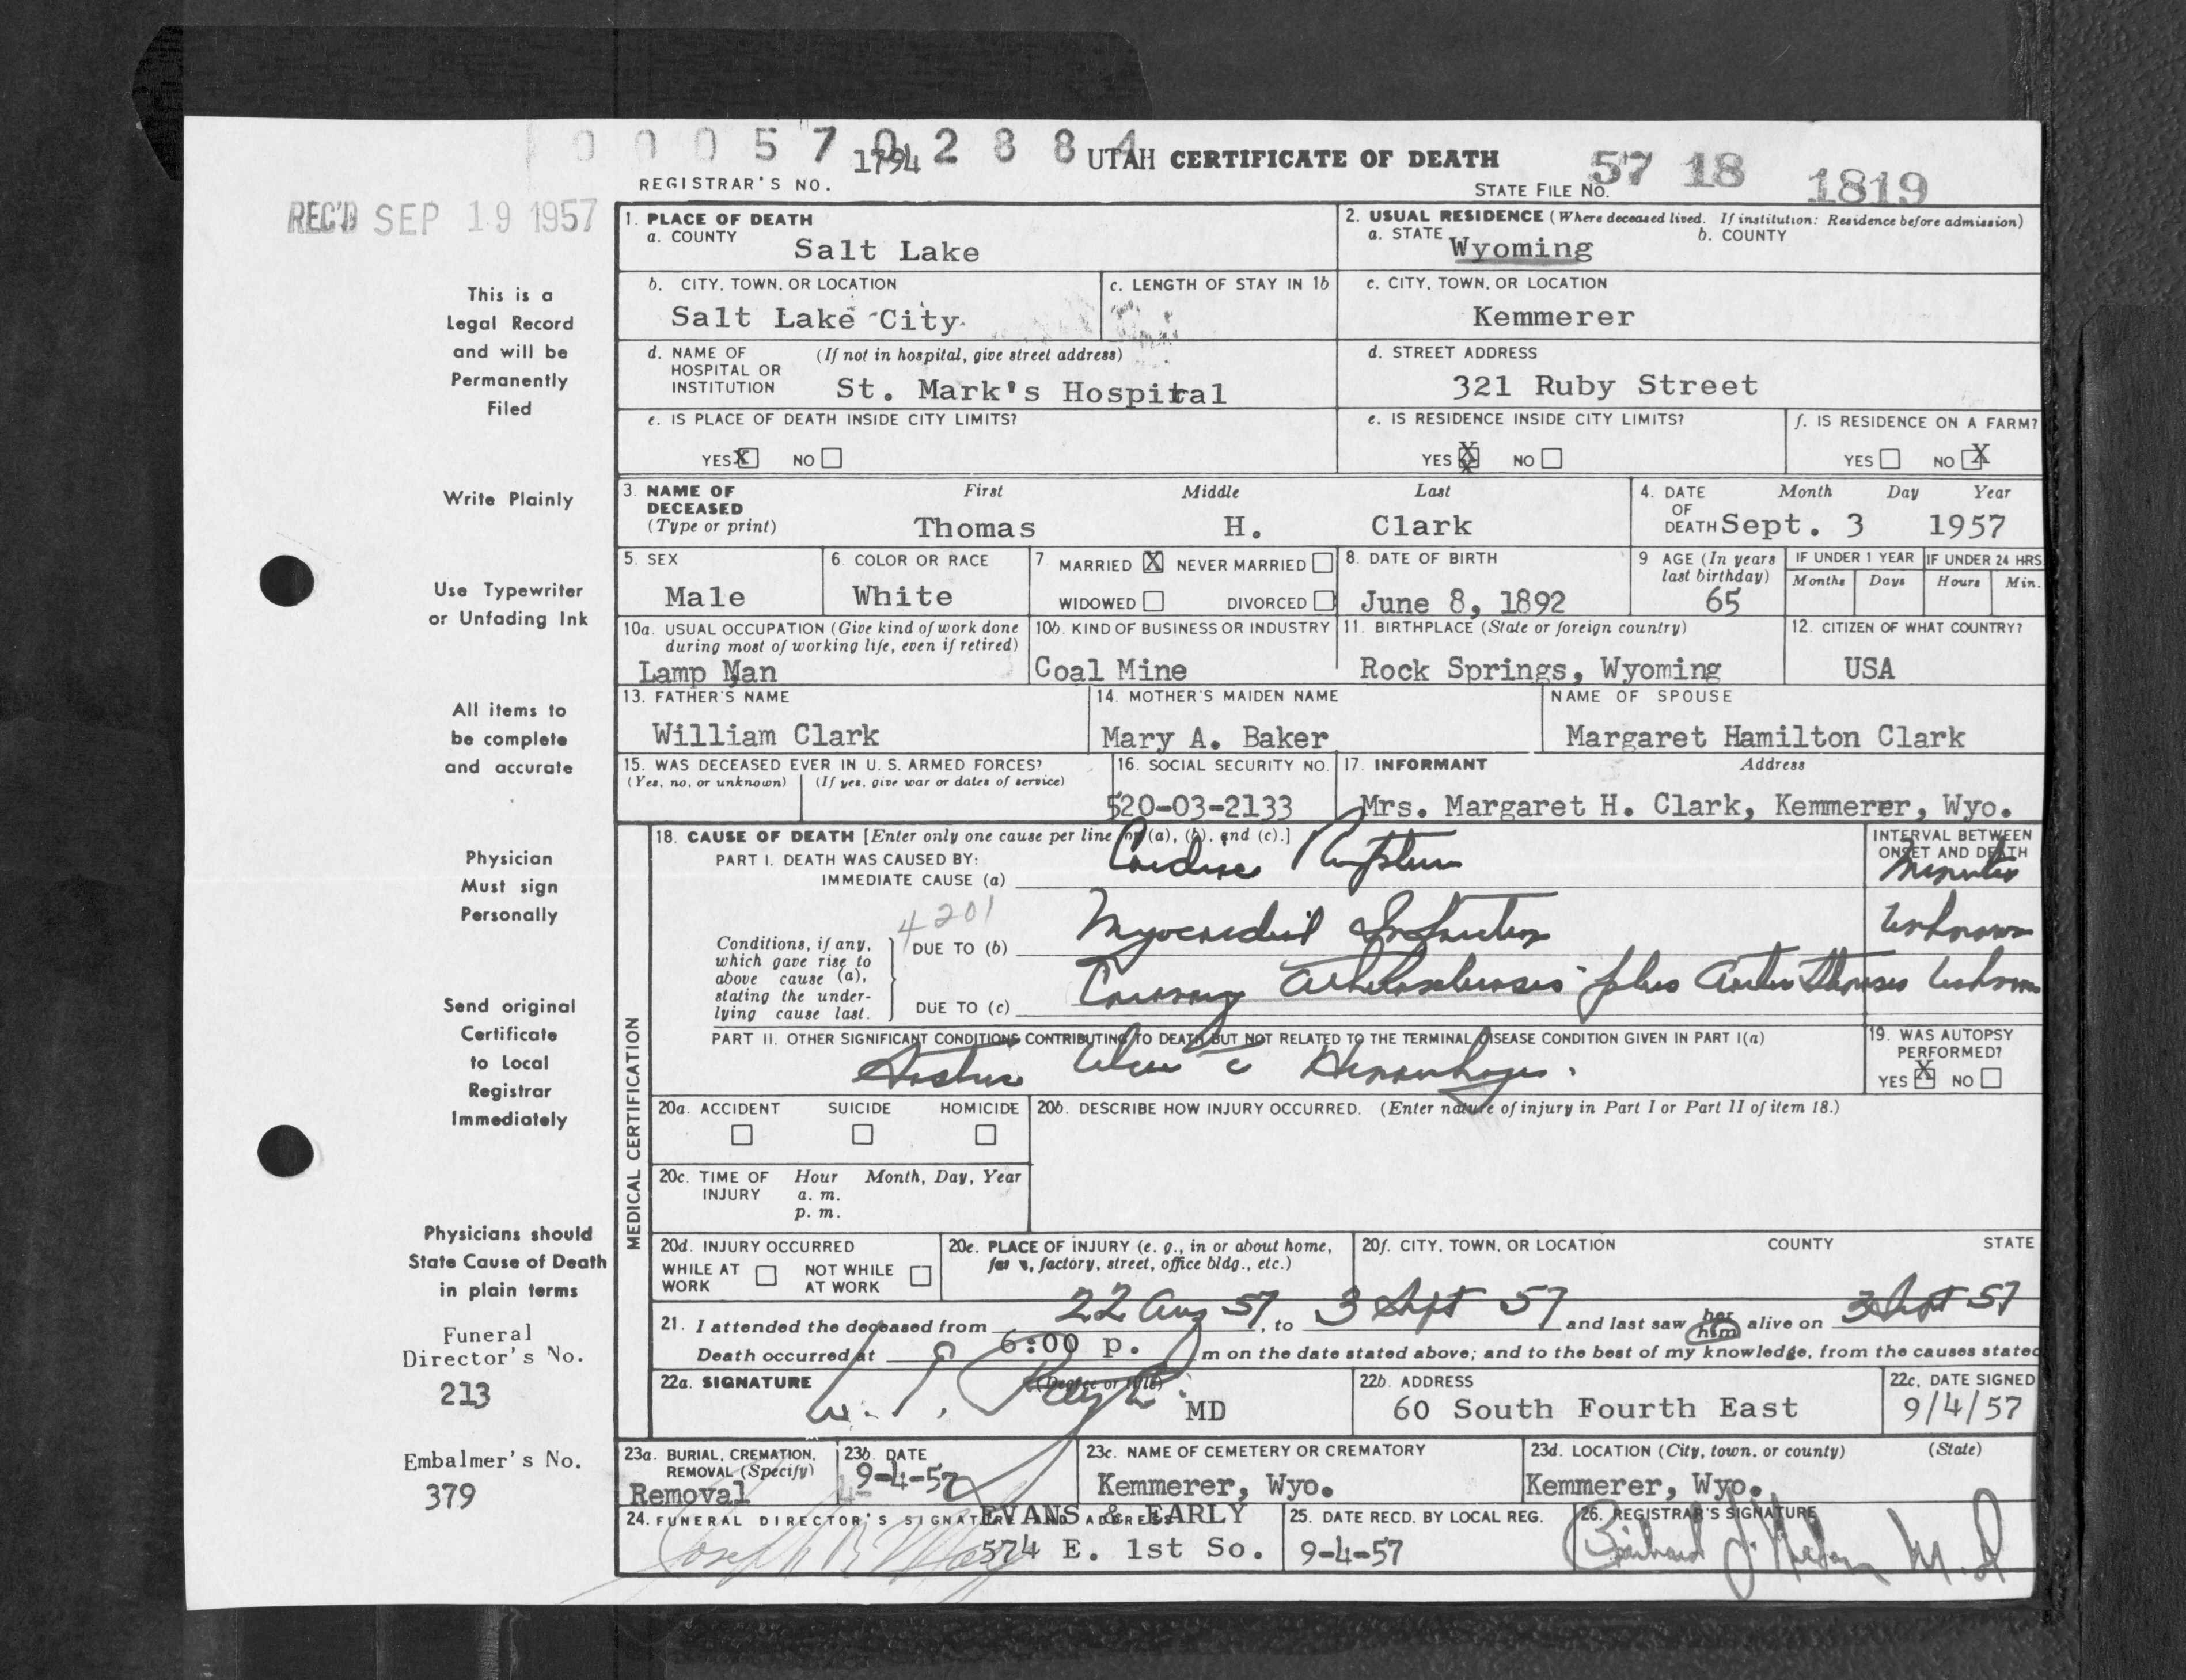 0 0 0 5 7 0 2 8 8 4
1794
REGISTRAR'S NO.
UTAH CERTIFICATE OF DEATH
STATE FILE NO. 57 18 1819
REC'D SEP 19 1957
This is a
Legal Record
and will be
Permanently
Filed
Write Plainly
Use Typewriter
or Unfading Ink
All items to
be complete
and accurate
Physician
Must sign
Personally
Send original
Certificate
to Local
Registrar
Immediately
Physicians should
State Cause of Death
in plain terms
Funeral
Director's No.
213
Embalmer's No.
379
1. PLACE OF DEATH
a. COUNTY
Salt Lake
2. USUAL RESIDENCE (Where deceased lived. If institution: Residence before admission)
a. STATE Wyoming b. COUNTY
b. CITY, TOWN, OR LOCATION
Salt Lake City
c. LENGTH OF STAY IN 1b
c. CITY, TOWN, OR LOCATION
Kemmerer
d. NAME OF HOSPITAL OR INSTITUTION (If not in hospital, give street address)
St. Mark's Hospital
d. STREET ADDRESS
321 Ruby Street
e. IS PLACE OF DEATH INSIDE CITY LIMITS?
YES X NO
e. IS RESIDENCE INSIDE CITY LIMITS?
YES X NO
f. IS RESIDENCE ON A FARM?
YES NO X
3. NAME OF DECEASED (Type or print)
First Middle Last
Thomas H. Clark
4. DATE OF DEATH Month Day Year
Sept. 3 1957
5. SEX
Male
6. COLOR OR RACE
White
7 MARRIED X NEVER MARRIED
WIDOWED DIVORCED
8. DATE OF BIRTH
June 8, 1892
9 AGE (In years last birthday)
65
IF UNDER 1 YEAR
Months Days
IF UNDER 24 HRS
Hours Min.
10a. USUAL OCCUPATION (Give kind of work done
during most of working life, even if retired)
Lamp Man
10b. KIND OF BUSINESS OR INDUSTRY
Coal Mine
11. BIRTHPLACE (State or foreign country)
Rock Springs, Wyoming
12. CITIZEN OF WHAT COUNTRY?
USA
13. FATHER'S NAME
William Clark
14. MOTHER'S MAIDEN NAME
Mary A. Baker
NAME OF SPOUSE
Margaret Hamilton Clark
15. WAS DECEASED EVER IN U. S. ARMED FORCES?
(Yes, no, or unknown) (If yes, give war or dates of service)
16. SOCIAL SECURITY NO.
520-03-2133
17. INFORMANT Address
Mrs. Margaret H. Clark, Kemmerer, Wyo.
MEDICAL CERTIFICATION
18. CAUSE OF DEATH [Enter only one cause per line for (a), (b), and (c).]
PART I. DEATH WAS CAUSED BY:
IMMEDIATE CAUSE (a) Cardiac Rupture
INTERVAL BETWEEN
ONSET AND DEATH
Minutes
4201
Conditions, if any,
which gave rise to
above cause (a),
stating the under-
lying cause last.
DUE TO (b) Myocardial Infarction Unknown
DUE TO (c) Coronary Atherosclerosis plus Unknown
PART II. OTHER SIGNIFICANT CONDITIONS CONTRIBUTING TO DEATH BUT NOT RELATED TO THE TERMINAL DISEASE CONDITION GIVEN IN PART I(a)
Gastric Ulcer c Hemorrhage.
19. WAS AUTOPSY
PERFORMED?
YES X NO
20a. ACCIDENT SUICIDE HOMICIDE
20b. DESCRIBE HOW INJURY OCCURRED. (Enter nature of injury in Part I or Part II of item 18.)
20c. TIME OF INJURY Hour Month, Day, Year
a. m.
p. m.
20d. INJURY OCCURRED
WHILE AT WORK NOT WHILE AT WORK
20e. PLACE OF INJURY (e. g., in or about home,
farm, factory, street, office bldg., etc.)
20f. CITY, TOWN, OR LOCATION COUNTY STATE
21. I attended the deceased from 22 Aug 57, to 3 Sept 57 and last saw her him alive on 3 Sept 57
Death occurred at 6:00 p. m on the date stated above; and to the best of my knowledge, from the causes stated
22a. SIGNATURE (Degree or title)
MD
22b. ADDRESS
60 South Fourth East
22c. DATE SIGNED
9/4/57
23a. BURIAL, CREMATION,
REMOVAL (Specify)
Removal
23b. DATE
9-4-57
23c. NAME OF CEMETERY OR CREMATORY
Kemmerer, Wyo.
23d. LOCATION (City, town, or county) (State)
Kemmerer, Wyo.
24. FUNERAL DIRECTOR'S SIGNATURE AND ADDRESS
EVANS & EARLY
574 E. 1st So.
25. DATE RECD. BY LOCAL REG.
9-4-57
26. REGISTRAR'S SIGNATURE
M.D